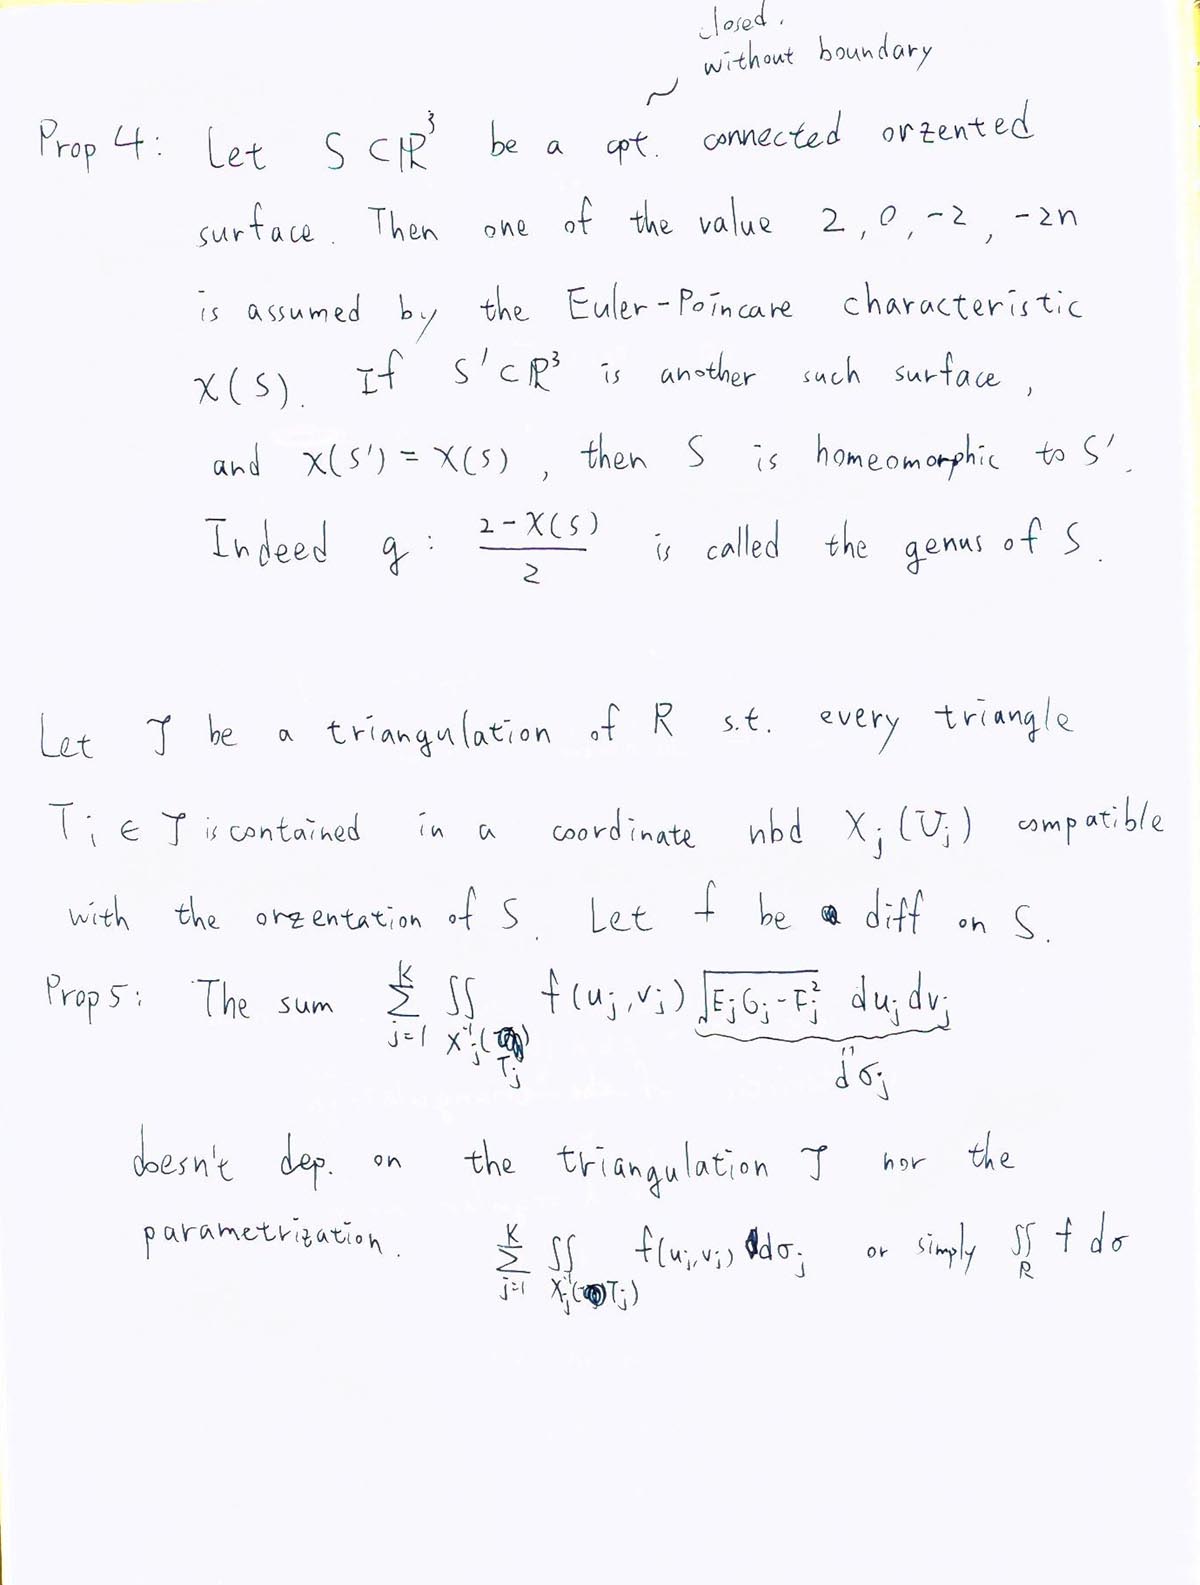 closed.
without boundary
Prop 4: Let S ⊂ ℝ³ be a cpt. connected orzented
surface. Then one of the value 2, 0, -2, -2n
is assumed by the Euler-Poincare characteristic
χ(S). If S' ⊂ ℝ³ is another such surface,
and χ(S') = χ(S), then S is homeomorphic to S'.
Indeed g: (2-χ(S))/2 is called the genus of S.
Let 𝒥 be a triangulation of R s.t. every triangle
Tᵢ ∈ 𝒥 is contained in a coordinate nbd Xⱼ(Uⱼ) compatible
with the orzentation of S. Let f be diff on S.
Prop 5: The sum ∑_{j=1}^{K} ∬_{Xⱼ⁻¹(Tⱼ)} f(uⱼ,vⱼ) √(EⱼGⱼ-Fⱼ²) duⱼdvⱼ
" dσⱼ
doesn't dep. on the triangulation 𝒥 nor the
parametrization. ∑_{j=1}^{K} ∬_{Xⱼ⁻¹(Tⱼ)} f(uⱼ,vⱼ) dσⱼ or simply ∬_R f dσ